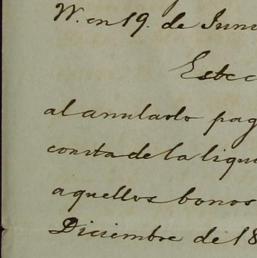 W. en 19. de Juni
Este c
al anulado pag
consta de la liqui
aquellos bonos
Diciembre de 18